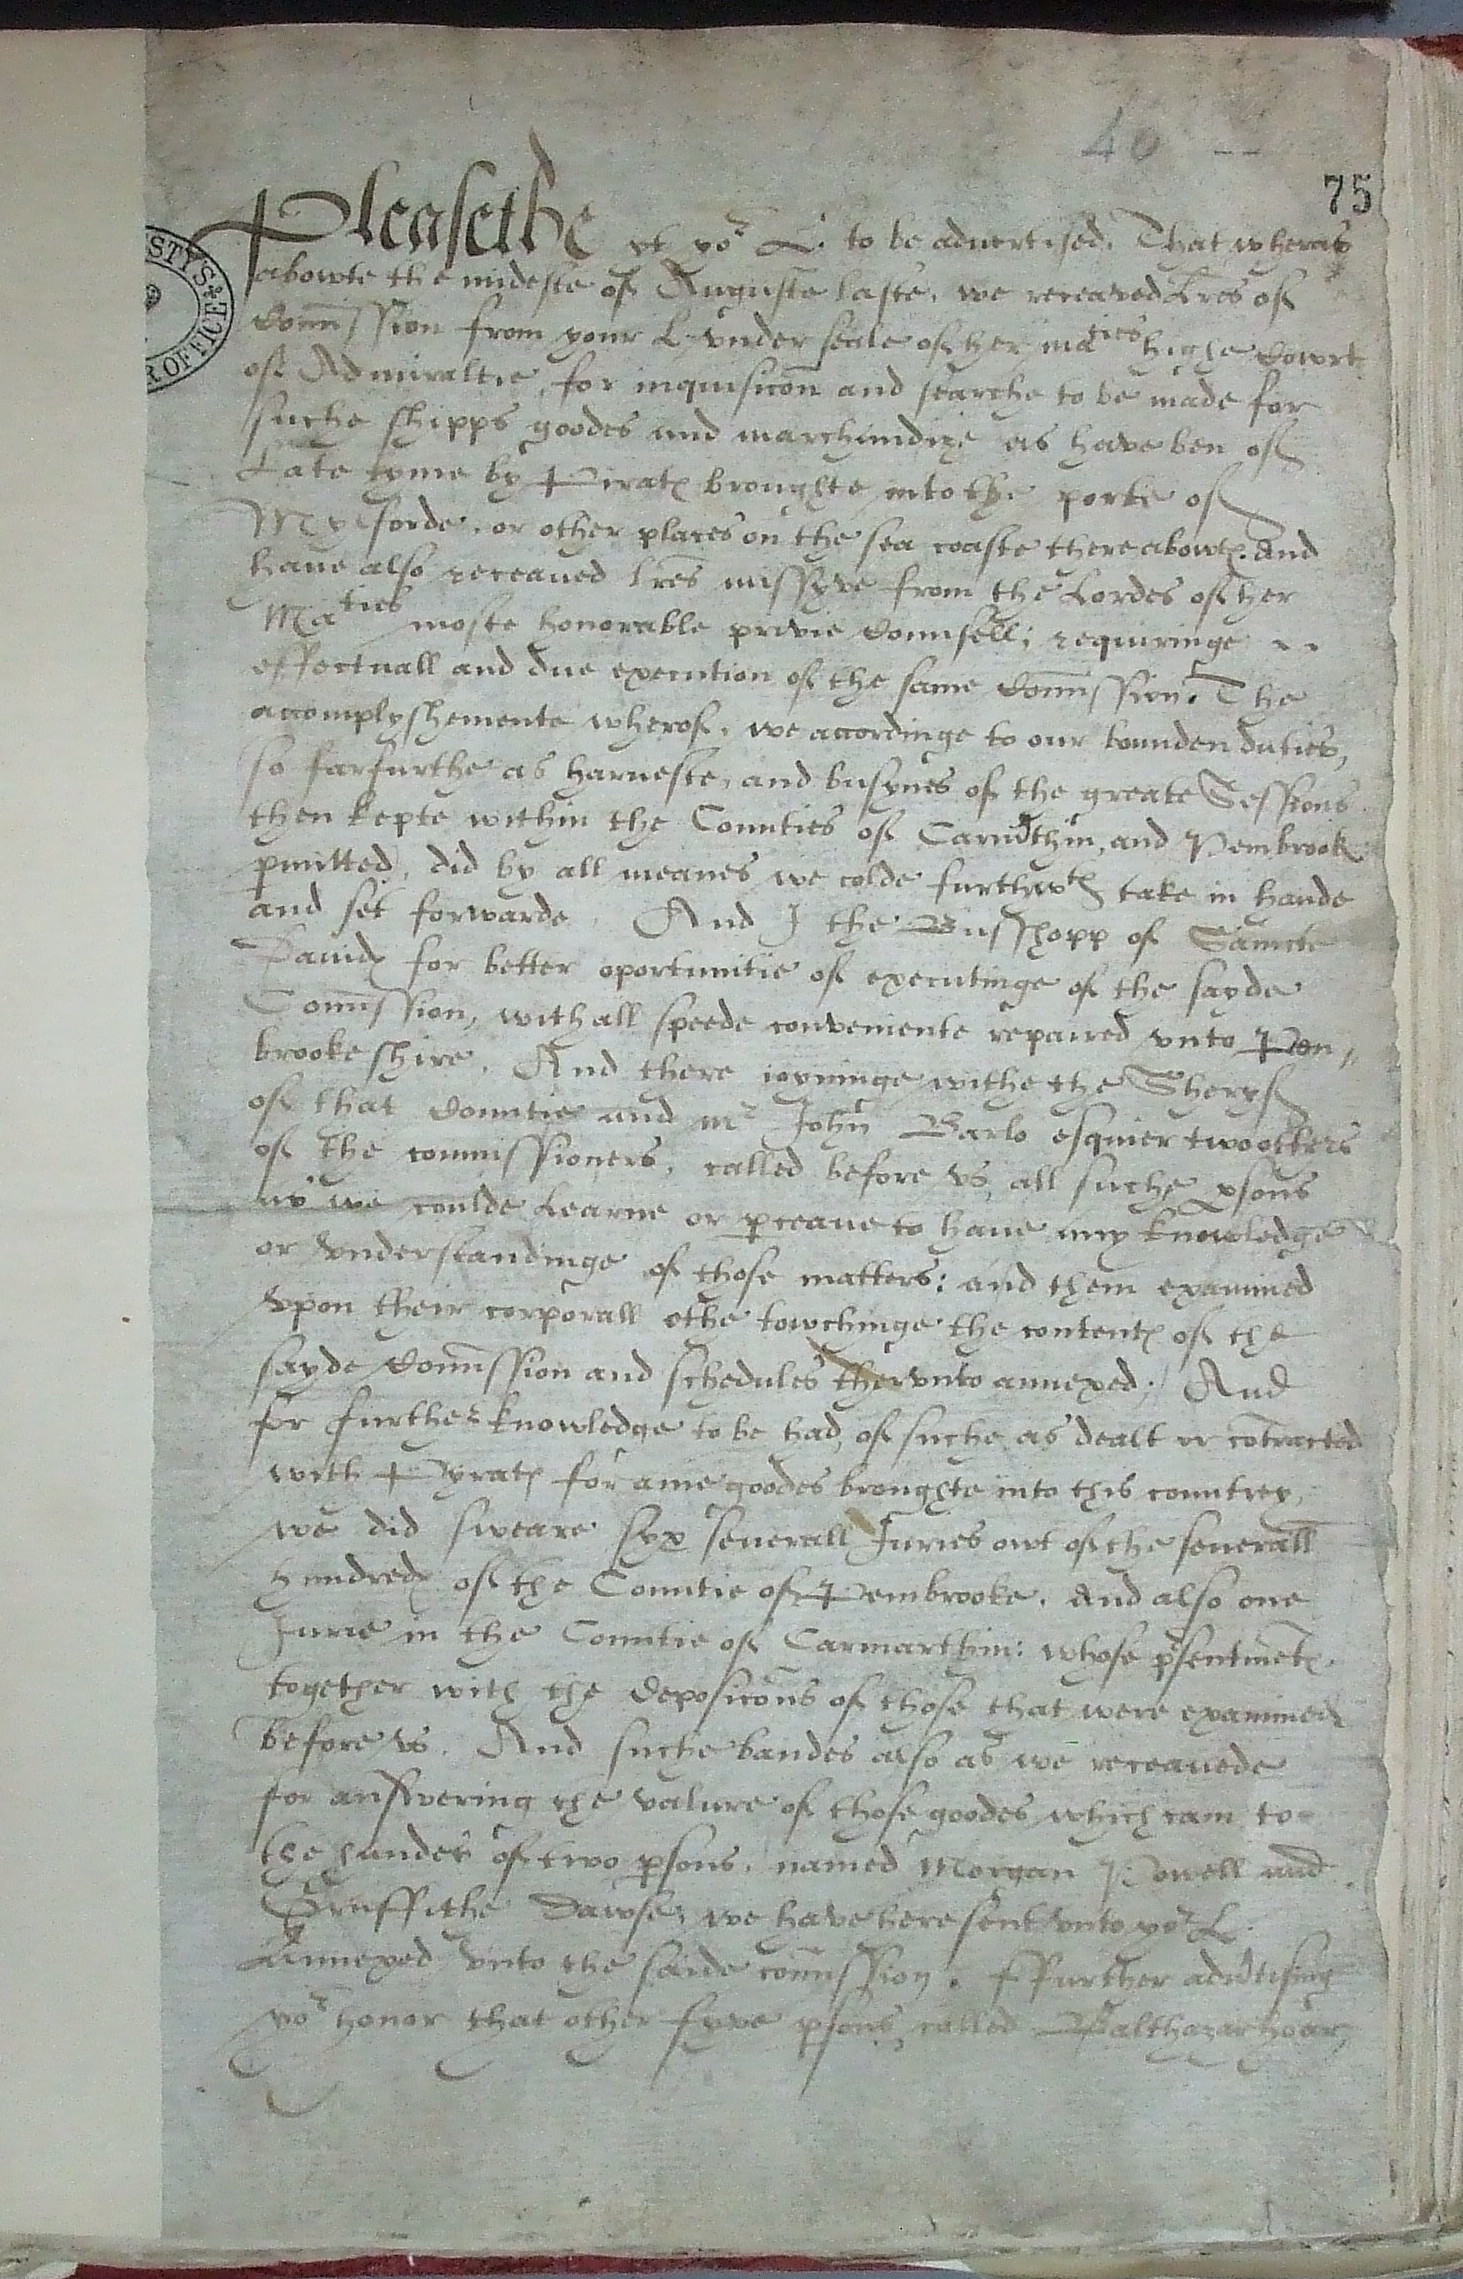 40 --
75
STY'S
R OFFICE
Pleasethe yt yor L. to be aduertised. That wheras
abowte the mideste of Auguste laste, we receaved Lres of
Comission from your L. vnder seale of her maties highe Cowrt
of Admiraltie, for inquisicon and searche to be made for
suche shipps goodes and marchandize as have ben of
Late tyme by Pirates broughte into the porte of
Mylforde, or other places on the sea coaste thereabowtes. And
haue also receaued lres missyve from the Lordes of her
Maties moste honorable privie Counsell; requiringe --
effectuall and due execution of the same Comission. The
accomplyshemente wherof, we accordinge to our bounden duties,
so farfurthe as harueste, and busynes of the greate Sessions
then kepte within the Counties of Carmthin, and Pembrook
pmitted, did by all meanes we colde furthwth take in hande
and set forwarde. And I the Busshopp of Saincte
Dauides for better oportunitie of executinge of the sayde
Comission, with all speede conveniente repaired vnto Pem,,
brooke shire. And there ioyninge withe the Sheryf
of that Countie and mr John Barlo esquier twoo others
of the commissioners, called before vs, all suche psons
as we coulde Learne or pceaue to haue any knowledge
or vnderstandinge of those matters: and them examined
vpon their corporall othe towchinge the contentes of the
sayde Comission and schedules thervnto annexed; And
for further knowledge to be had, of suche as dealt or cotracted
with Pyrates for anie goodes broughte into this countrey,
we did sweare syx seuerall Juries owt of the seuerall
hundredes of the Countie of Pembrooke. And also one
Jurie in the Countie of Carmarthin: whose psentmetes
together with the deposicons of those that were examined
before vs. And suche bandes also as we receauede
for answering the valure of those goodes which cam to
the handes of two psons, named Morgan Powell and
Gruffithe Dawse, we have here sent vnto yor L.
Annexed vnto the saide comission. Ffurther adutising
yor honor that other fyve psons called Balthazar hoar,